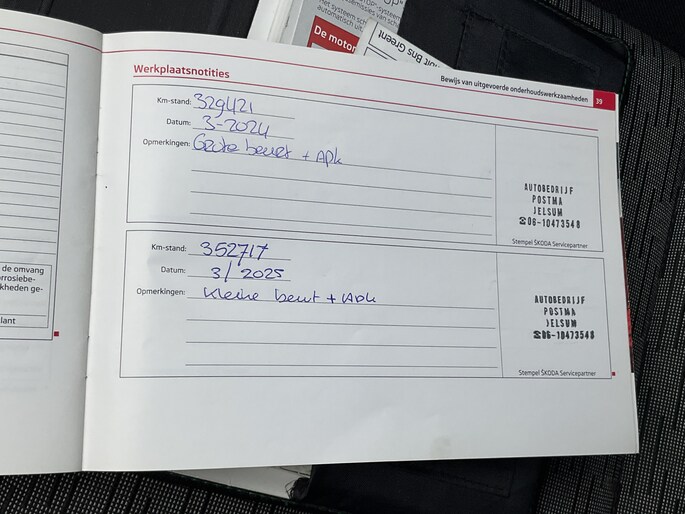 OP"-
OP"-systeem
het systeem sch
emissies van sch
automatisch uit
De motor
olt Bns Greent
Werkplaatsnotities
Bewijs van uitgevoerde onderhoudswerkzaamheden 39
Km-stand: 329421
Datum: 3-2024
Opmerkingen: Grote beurt + Apk
AUTOBEDRIJF
POSTMA
JELSUM
☎06-10473548
Stempel ŠKODA Servicepartner
Km-stand: 352717
Datum: 3/2025
Opmerkingen: Kleine beurt + Apk
AUTOBEDRIJF
POSTMA
JELSUM
☎06-10473548
Stempel ŠKODA Servicepartner
de omvang
rrosiebe-
kheden ge-
lant